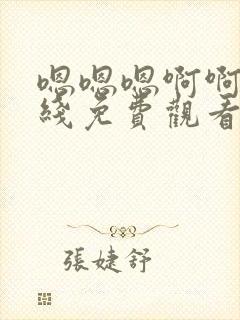 嗯嗯嗯啊啊
綫免費觀看
張婕舒